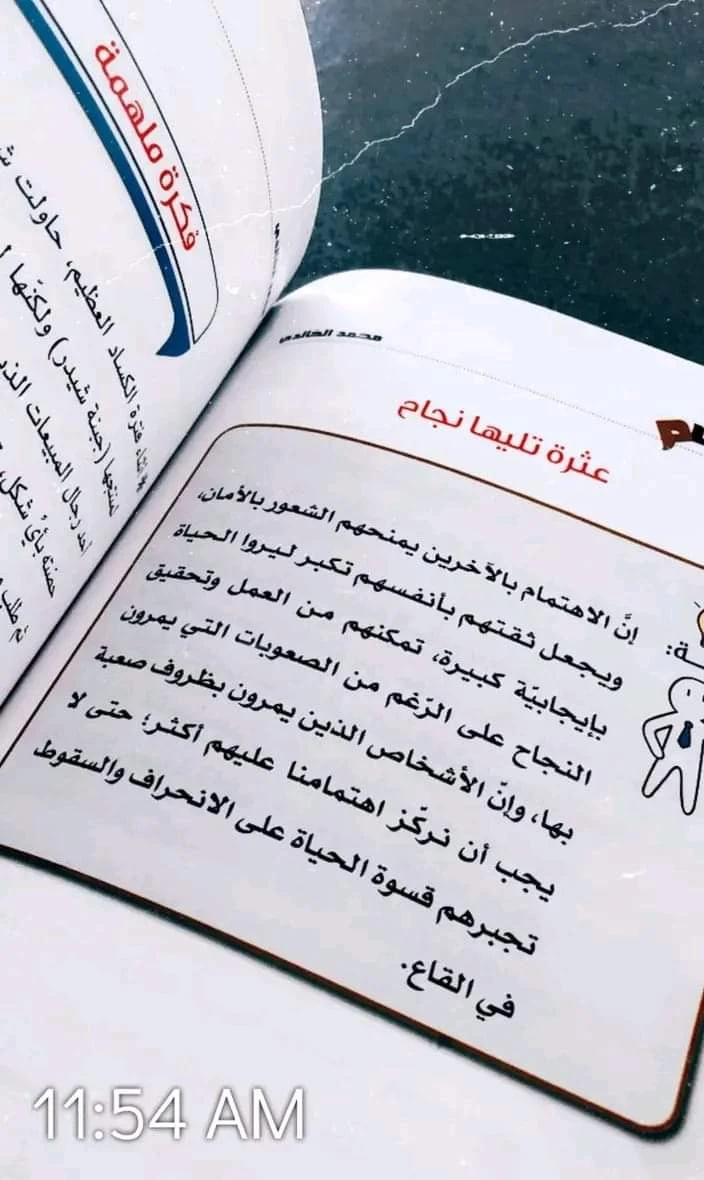 محمد الخالدي
عثرة تليها نجاح
إنَّ الاهتمام بالآخرين يمنحهم الشعور بالأمان،
ويجعل ثقتهم بأنفسهم تكبر ليروا الحياة
بإيجابيّة كبيرة، تمكنهم من العمل وتحقيق
النجاح على الرّغم من الصعوبات التي يمرون
بها، وإنّ الأشخاص الذين يمرون بظروف صعبة
يجب أن نركّز اهتمامنا عليهم أكثر؛ حتى لا
تجبرهم قسوة الحياة على الانحراف والسقوط
في القاع.
فكرة ملهمة
فترة الكساد العظيم، حاولت
(جبنة شيدر) ولكنّها
أحد رجال المبيعات
بأيّ شكل،
ثم طلب
11:54 AM